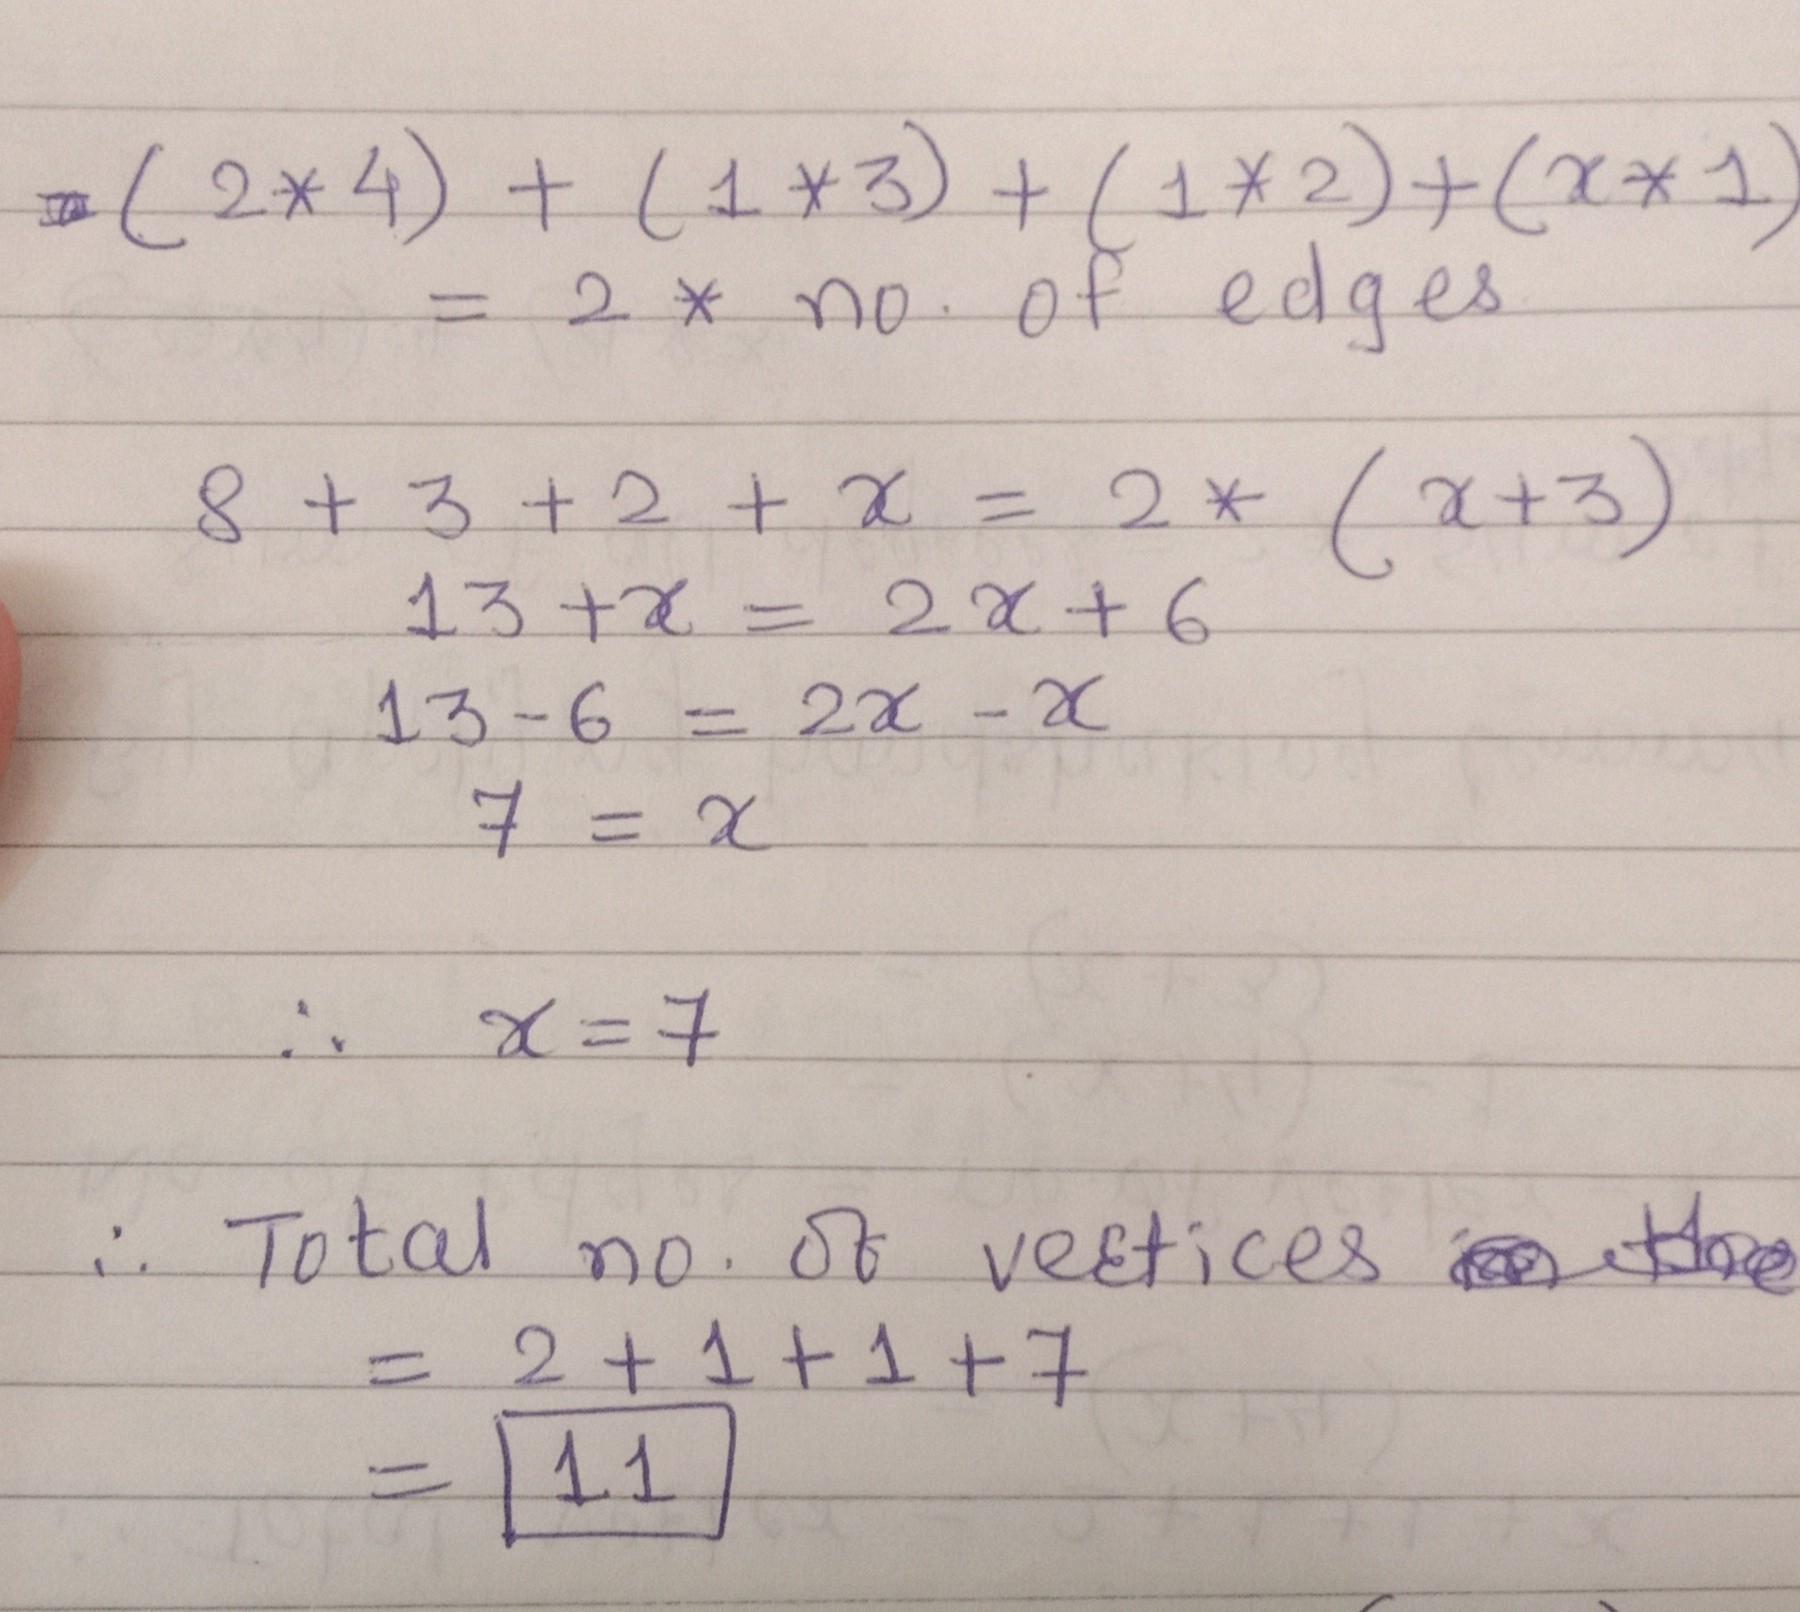 (2*4) + (1*3) + (1*2) + (x*1)
= 2 * no. of edges
8 + 3 + 2 + x = 2 * (x+3)
13 + x = 2x + 6
13 - 6 = 2x - x
7 = x
∴ x = 7
∴ Total no. of vertices
= 2 + 1 + 1 + 7
= 11